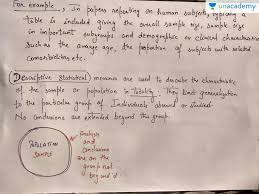 unacademy
For example, in papers reporting on human subjects, typically a
table is included giving the overall sample size, sample size
in important subgroups and demographic or clinical characteristics
such as the average age, the proportion of subjects with related
comorbidities etc.
Descriptive Statistical measures are used to describe the characteristic
of the sample or population in totality. They limit generalization
to the particular group of Individuals observed or studied.
No conclusions are extended beyond this group.
POPULATION
SAMPLE
Analysis
and
conclusions
are on the
group not
beyond